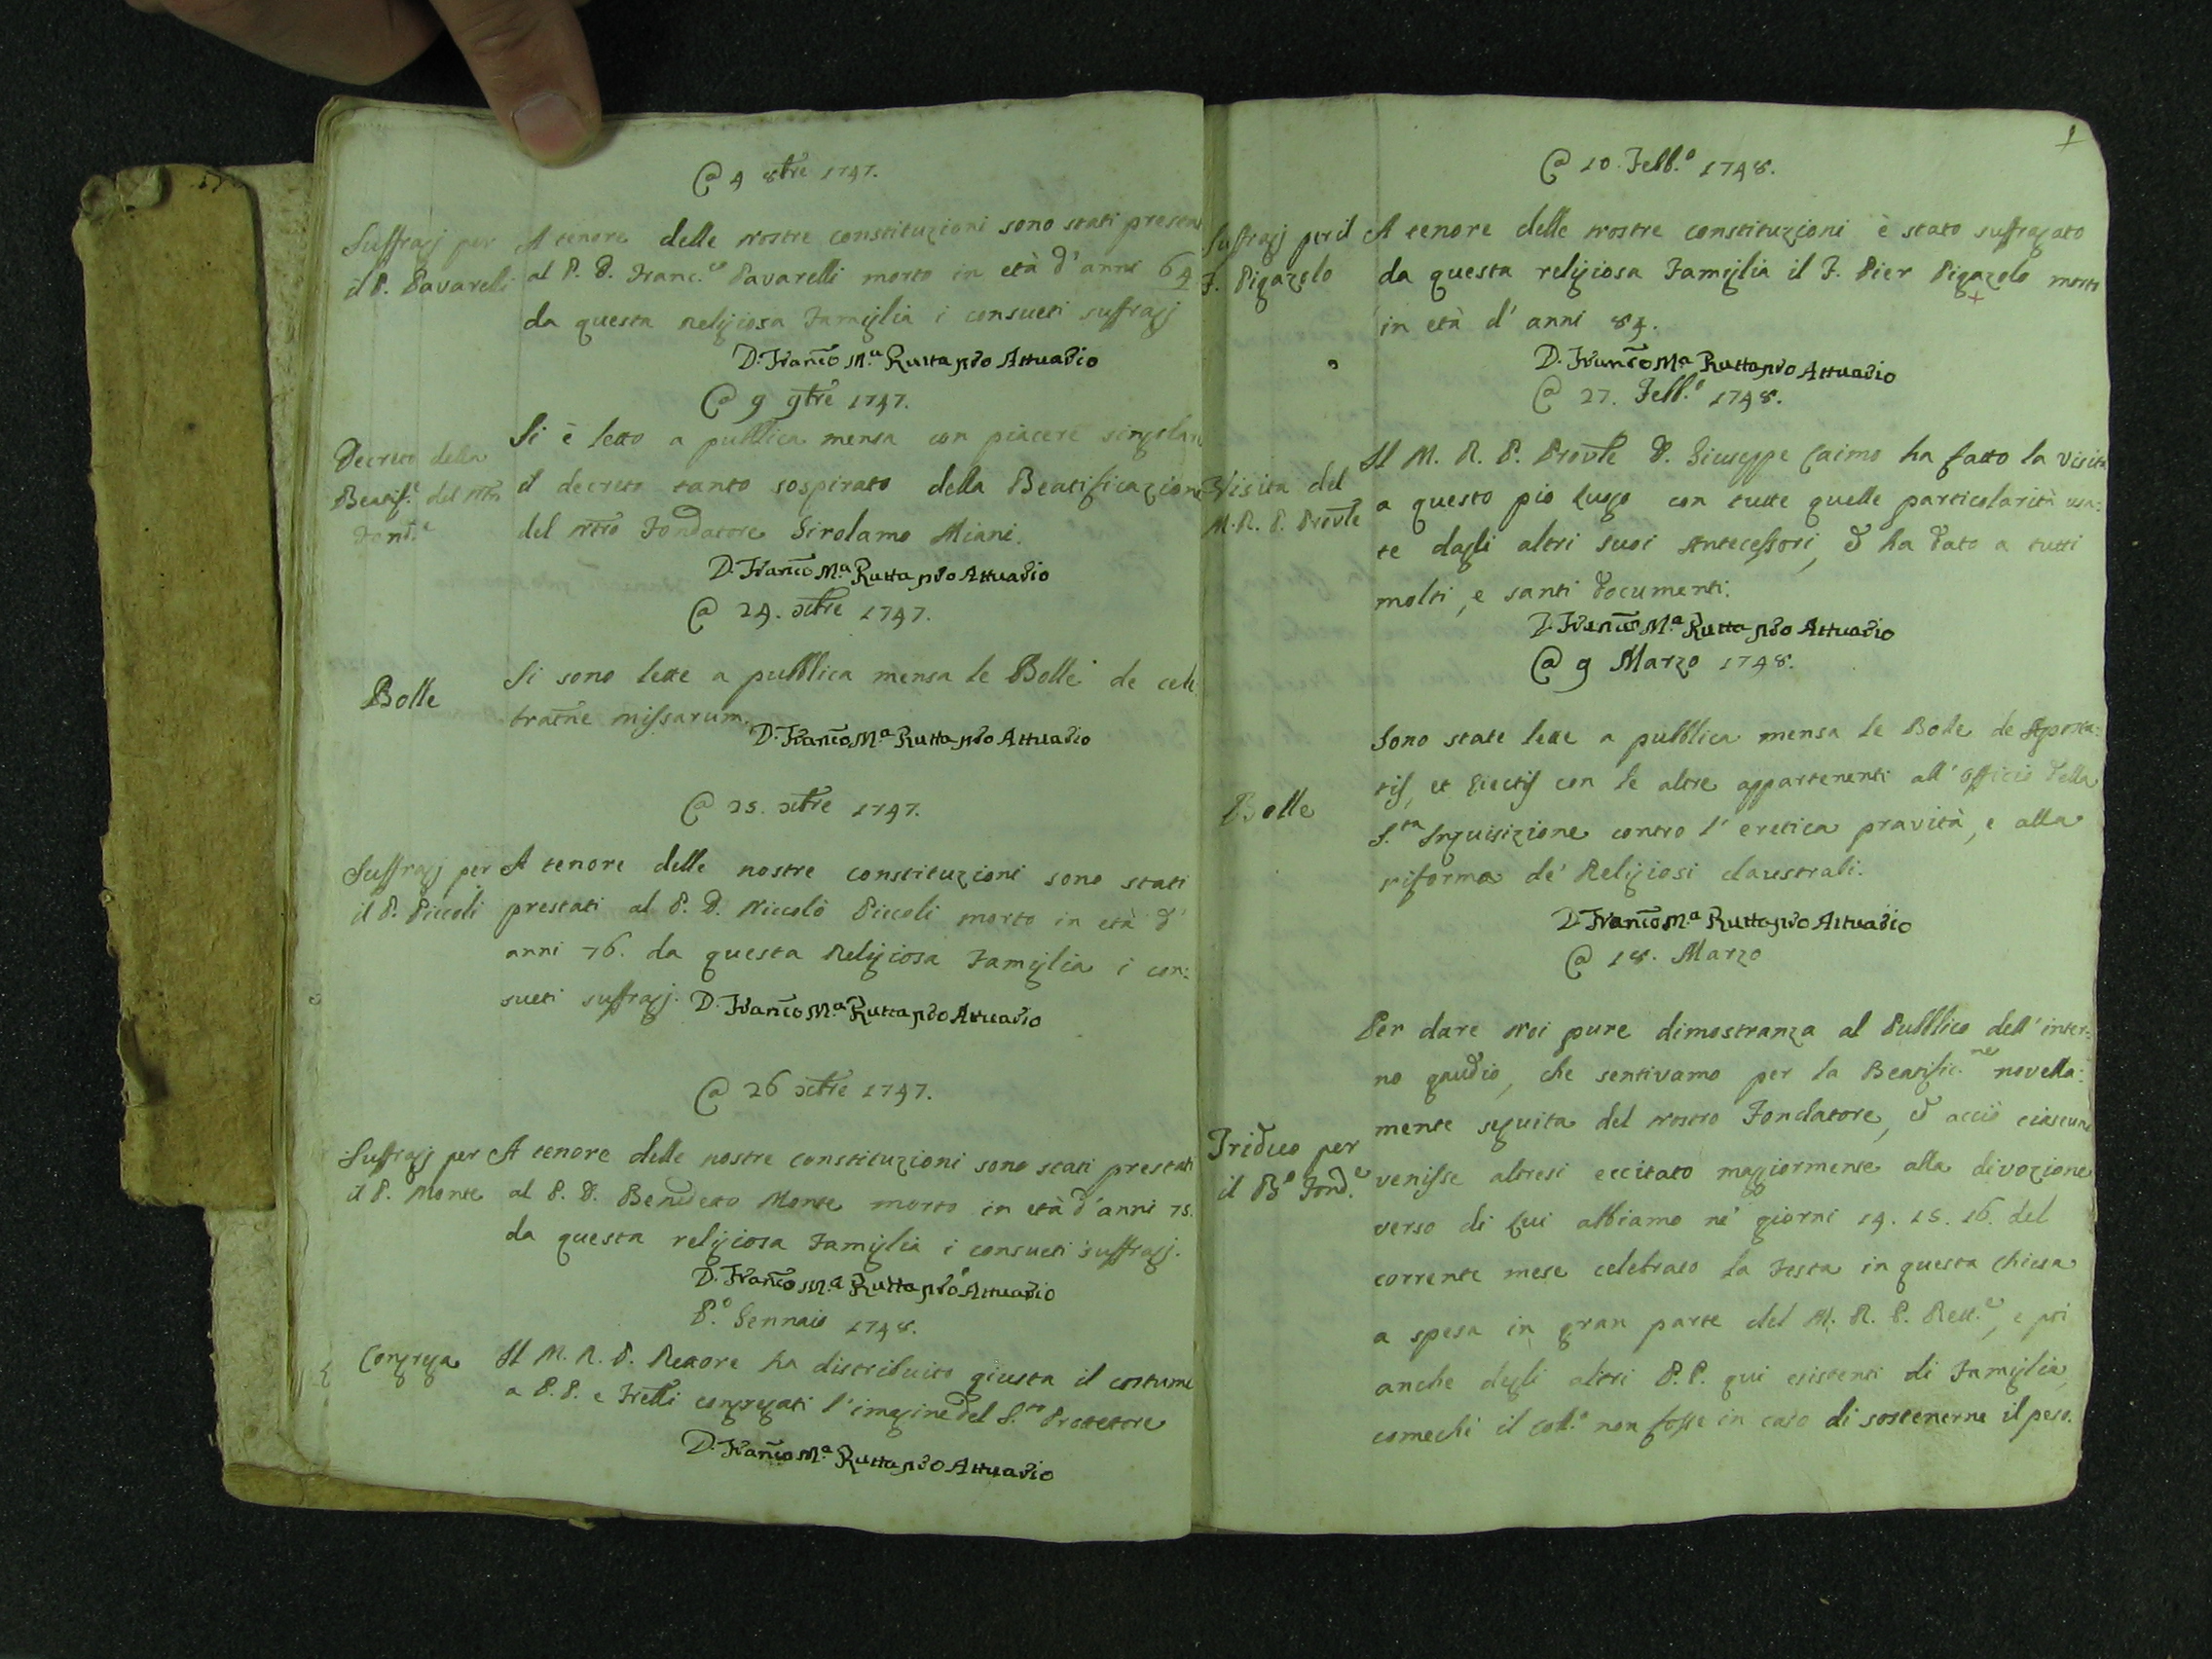 @ 4 8bre 1747.
Suffragj per
il P. Pavarelli
A tenore delle nostre constituzioni sono stati presen
al P. D. Franc.co Pavarelli morto in età d'anni 64
da questa Religiosa Famiglia i consueti suffragj
D. Franco M.a Rutta pro Attuario
@ 9 9bre 1747.
Decreto della
Beatif.e del nro
Fond.e
Si è letto a pubblica mensa con piacere singolare
il decreto tanto sospirato della Beatificazione
del nro Fondatore Girolamo Miani.
D. Franco M.a Rutta pro Attuario
@ 24. xbre 1747.
Bolle
Si sono lette a pubblica mensa le Bolle de cele
bratne missarum.
D. Franco M.a Rutta pro Attuario
@ 25. xbre 1747.
Suffragj per
il P. Piccoli
A tenore delle nostre constituzioni sono stati
prestati al P. D. Niccolò Piccoli morto in età d'
anni 76. da questa Religiosa Famiglia i con:
sueti suffragj. D. Franco M.a Rutta pro Attuario
@ 26 xbre 1747.
Suffragj per
il P. Monte
A tenore delle nostre constituzioni sono stati prestati
al P. D. Benedetto Monte morto in età d'anni 75.
da questa religiosa Famiglia i consueti suffragj.
D. Franco M.a Rutta pro Attuario
P.o Gennaio 1748.
Congrega
Il M. R. P. Rettore ha distribuito giusta il costume
a P.P. e Frelli congregati l'imagine del S.to Protettore
D. Franco M.a Rutta pro Attuario
@ 10. Febb.o 1748.
Suffragj per il
F. Pigazolo
A tenore delle nostre constituzioni è stato suffragato
da questa religiosa Famiglia il F. Pier Pigazolo morto
in età d'anni 84.
D. Franco M.a Rutta pro Attuario
@ 27. Febb.o 1748.
Visita del
M. R. P. Provle
Il M. R. P. Provle D. Giuseppe Caimo ha fatto la visita
a questo pio luogo con tutte quelle particolarità usa:
te dagli altri suoi Antecessori, ed ha dato a tutti
molti, e santi documenti.
D. Franco M.a Rutta pro Attuario
@ 9 Marzo 1748.
Bolle
Sono state lette a pubblica mensa le Bolle de Aposta:
tis, et Eiectis con le altre appartenenti all'officio della
S.ta Inquisizione contro l'eretica pravità, e alla
riforma de' Religiosi claustrali.
D. Franco M.a Rutta pro Attuario
@ 18. Marzo
Triduo per
il B.o Fond.e
Per dare Noi pure dimostranza al Pubblico dell'inter:
no gaudio, che sentivamo per la Beatific.ne novella:
mente seguita del nostro Fondatore, ed acciò ciascuno
venisse altresi eccitato maggiormente alla divozione
verso di Lui abbiamo ne' giorni 14. 15. 16. del
corrente mese celebrato la Festa in questa Chiesa
a spesa in gran parte del M. R. P. Rett.e, e poi
anche degli altri P.P. qui esistenti di Famiglia,
comechè il Coll.o non fosse in caso di sostenerne il peso.